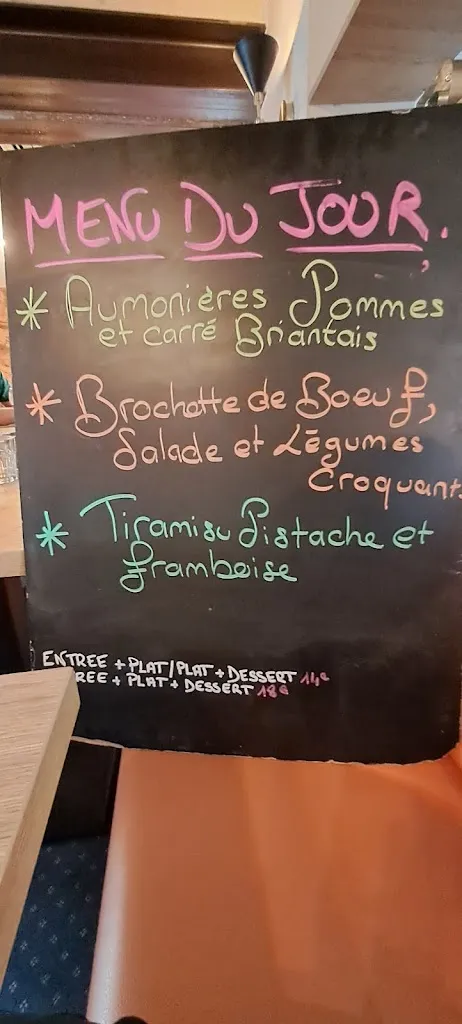 MENU DU JOUR.
* Aumonières Pommes
et carré Briantais
* Brochette de Boeuf,
Salade et Légumes
Croquant
* Tiramisu Pistache et
framboise
ENTREE + PLAT/PLAT + DESSERT 14€
REE + PLAT + DESSERT 18€